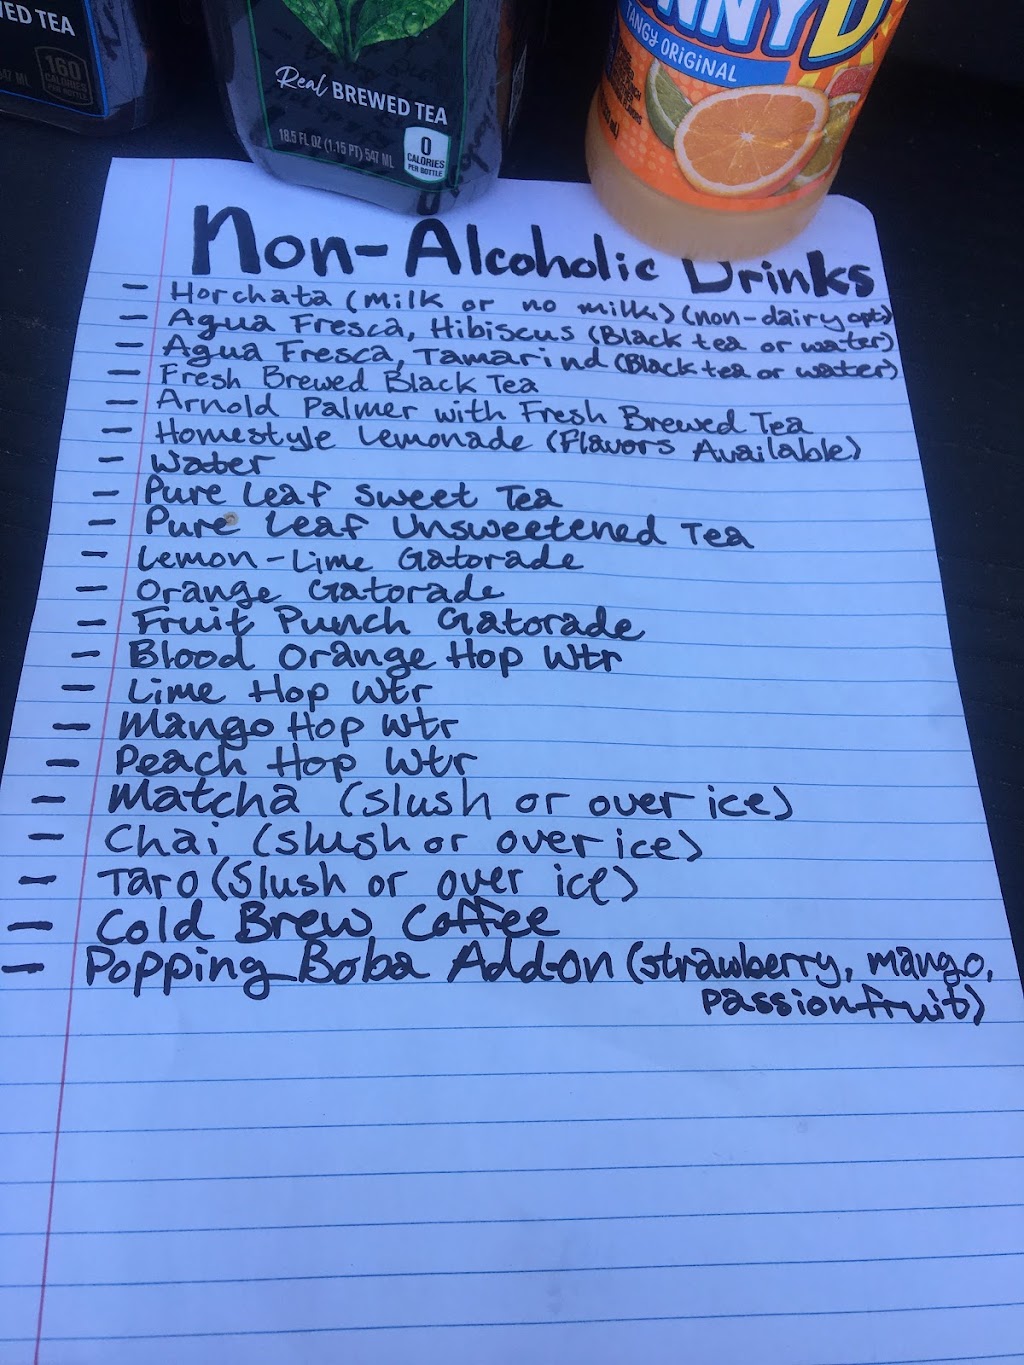 WED TEA
160
CALORIES
PER BOTTLE
547 ML
Real BREWED TEA
18.5 FL OZ (1.15 PT) 547 ML
0
CALORIES
PER BOTTLE
NNYD
TANGY ORIGINAL
Non-Alcoholic Drinks
- Horchata (milk or no milk) (non-dairy opt)
- Agua Fresca, Hibiscus (Black tea or water)
- Agua Fresca, Tamarind (Black tea or water)
- Fresh Brewed Black Tea
- Arnold Palmer with Fresh Brewed Tea
- Homestyle Lemonade (Flavors Available)
- Water
- Pure Leaf Sweet Tea
- Pure Leaf Unsweetened Tea
- Lemon-Lime Gatorade
- Orange Gatorade
- Fruit Punch Gatorade
- Blood Orange Hop Wtr
- Lime Hop Wtr
- Mango Hop Wtr
- Peach Hop Wtr
- Matcha (slush or over ice)
- Chai (slush or over ice)
- Taro (Slush or over ice)
- Cold Brew Coffee
- Popping Boba Add-on (strawberry, mango,
passionfruit)